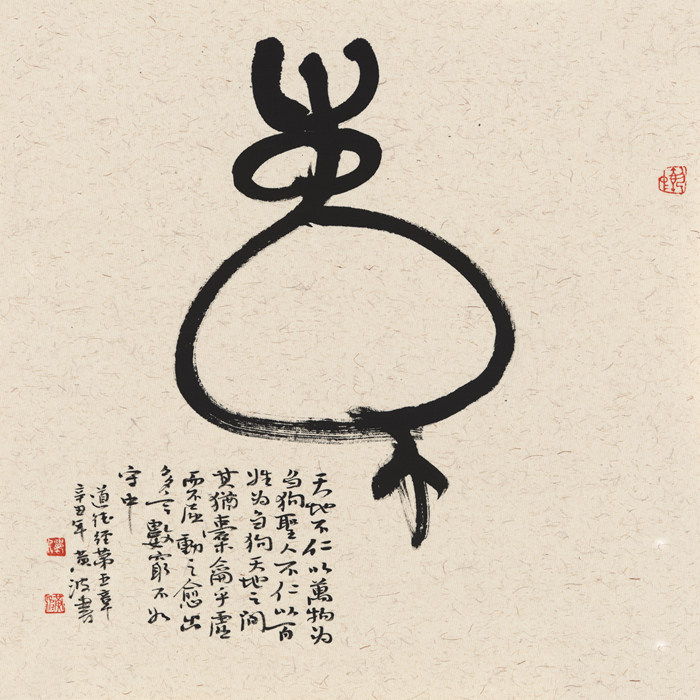 天地不仁以萬物为
刍狗聖人不仁以百
姓为刍狗天地之间
其猶橐龠乎虚
而不屈動之愈出
多言數窮不如
守中
道德经第五章
辛丑年黄波書